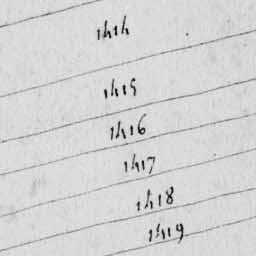 1414
1415
1416
1417
1418
1419